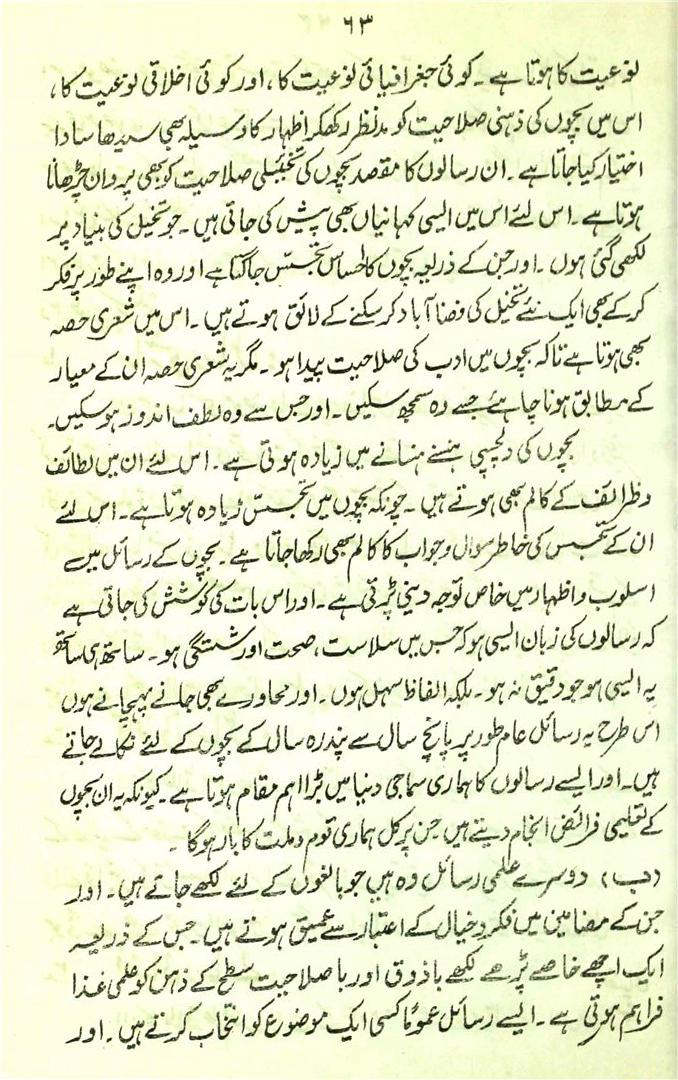 ۶۳
نوعیت کا ہوتا ہے۔ کوئی جغرافیائی نوعیت کا، اور کوئی اخلاقی نوعیت کا،
اس میں بچوں کی ذہنی صلاحیت کو مدنظر رکھکر اظہار کا وسیلہ بھی سیدھا سادا
اختیار کیا جاتا ہے۔ ان رسالوں کا مقصد بچوں کی تخیئلی صلاحیت کو بھی پروان چڑھانا
ہوتا ہے۔ اس لئے اس میں ایسی کہانیاں بھی پیش کی جاتی ہیں۔ جو تخیل کی بنیاد پر
لکھی گئی ہوں۔ اور جن کے ذریعہ بچوں کا احساس تجسّس جاگتا ہے اور وہ اپنے طور پر فکر
کر کے بھی ایک نئے تخیل کی فضا آباد کر سکنے کے لائق ہوتے ہیں۔ اس میں شعری حصہ
بھی ہوتا ہے تاکہ بچوں میں ادب کی صلاحیت پیدا ہو۔ مگر یہ شعری حصہ ان کے معیار
کے مطابق ہونا چاہئے جسے وہ سمجھ سکیں۔ اور جس سے وہ لطف اندوز ہو سکیں۔
بچوں کی دلچسپی ہنسنے ہنسانے میں زیادہ ہوتی ہے۔ اس لئے ان میں لطائف
و ظرائف کے کالم بھی ہوتے ہیں۔ چونکہ بچوں میں تجسّس زیادہ ہوتا ہے۔ اس لئے
ان کے تجسس کی خاطر سوال و جواب کا کالم بھی رکھا جاتا ہے۔ بچوں کے رسائل میں
اسلوب و اظہار میں خاص توجہ دینی پڑتی ہے۔ اور اس بات کی کوشش کی جاتی ہے
کہ رسالوں کی زبان ایسی ہو کہ جس میں سلاست، صحت اور شستگی ہو۔ ساتھ ہی ساتھ
یہ ایسی ہو جو دقیق نہ ہو۔ بلکہ الفاظ سہل ہوں۔ اور محاورے بھی جانے پہچانے ہوں
اس طرح یہ رسائل عام طور پر پانچ سال سے پندرہ سال کے بچوں کے لئے نکالے جاتے
ہیں۔ اور ایسے رسالوں کا ہماری سماجی دنیا میں بڑا اہم مقام ہوتا ہے۔ کیونکہ یہ ان بچوں
کے تعلیمی فرائض انجام دیتے ہیں جن پر کل ہماری قوم و ملت کا بار ہوگا۔
(ب) دوسرے علمی رسائل وہ ہیں جو بالغوں کے لئے لکھے جاتے ہیں۔ اور
جن کے مضامین میں فکر و خیال کے اعتبار سے عمیق ہوتے ہیں۔ جس کے ذریعہ
ایک اچھے خاصے پڑھے لکھے باذوق اور باصلاحیت سطح کے ذہن کو علمی غذا
فراہم ہوتی ہے۔ ایسے رسائل عموماً کسی ایک موضوع کو انتخاب کرتے ہیں۔ اور